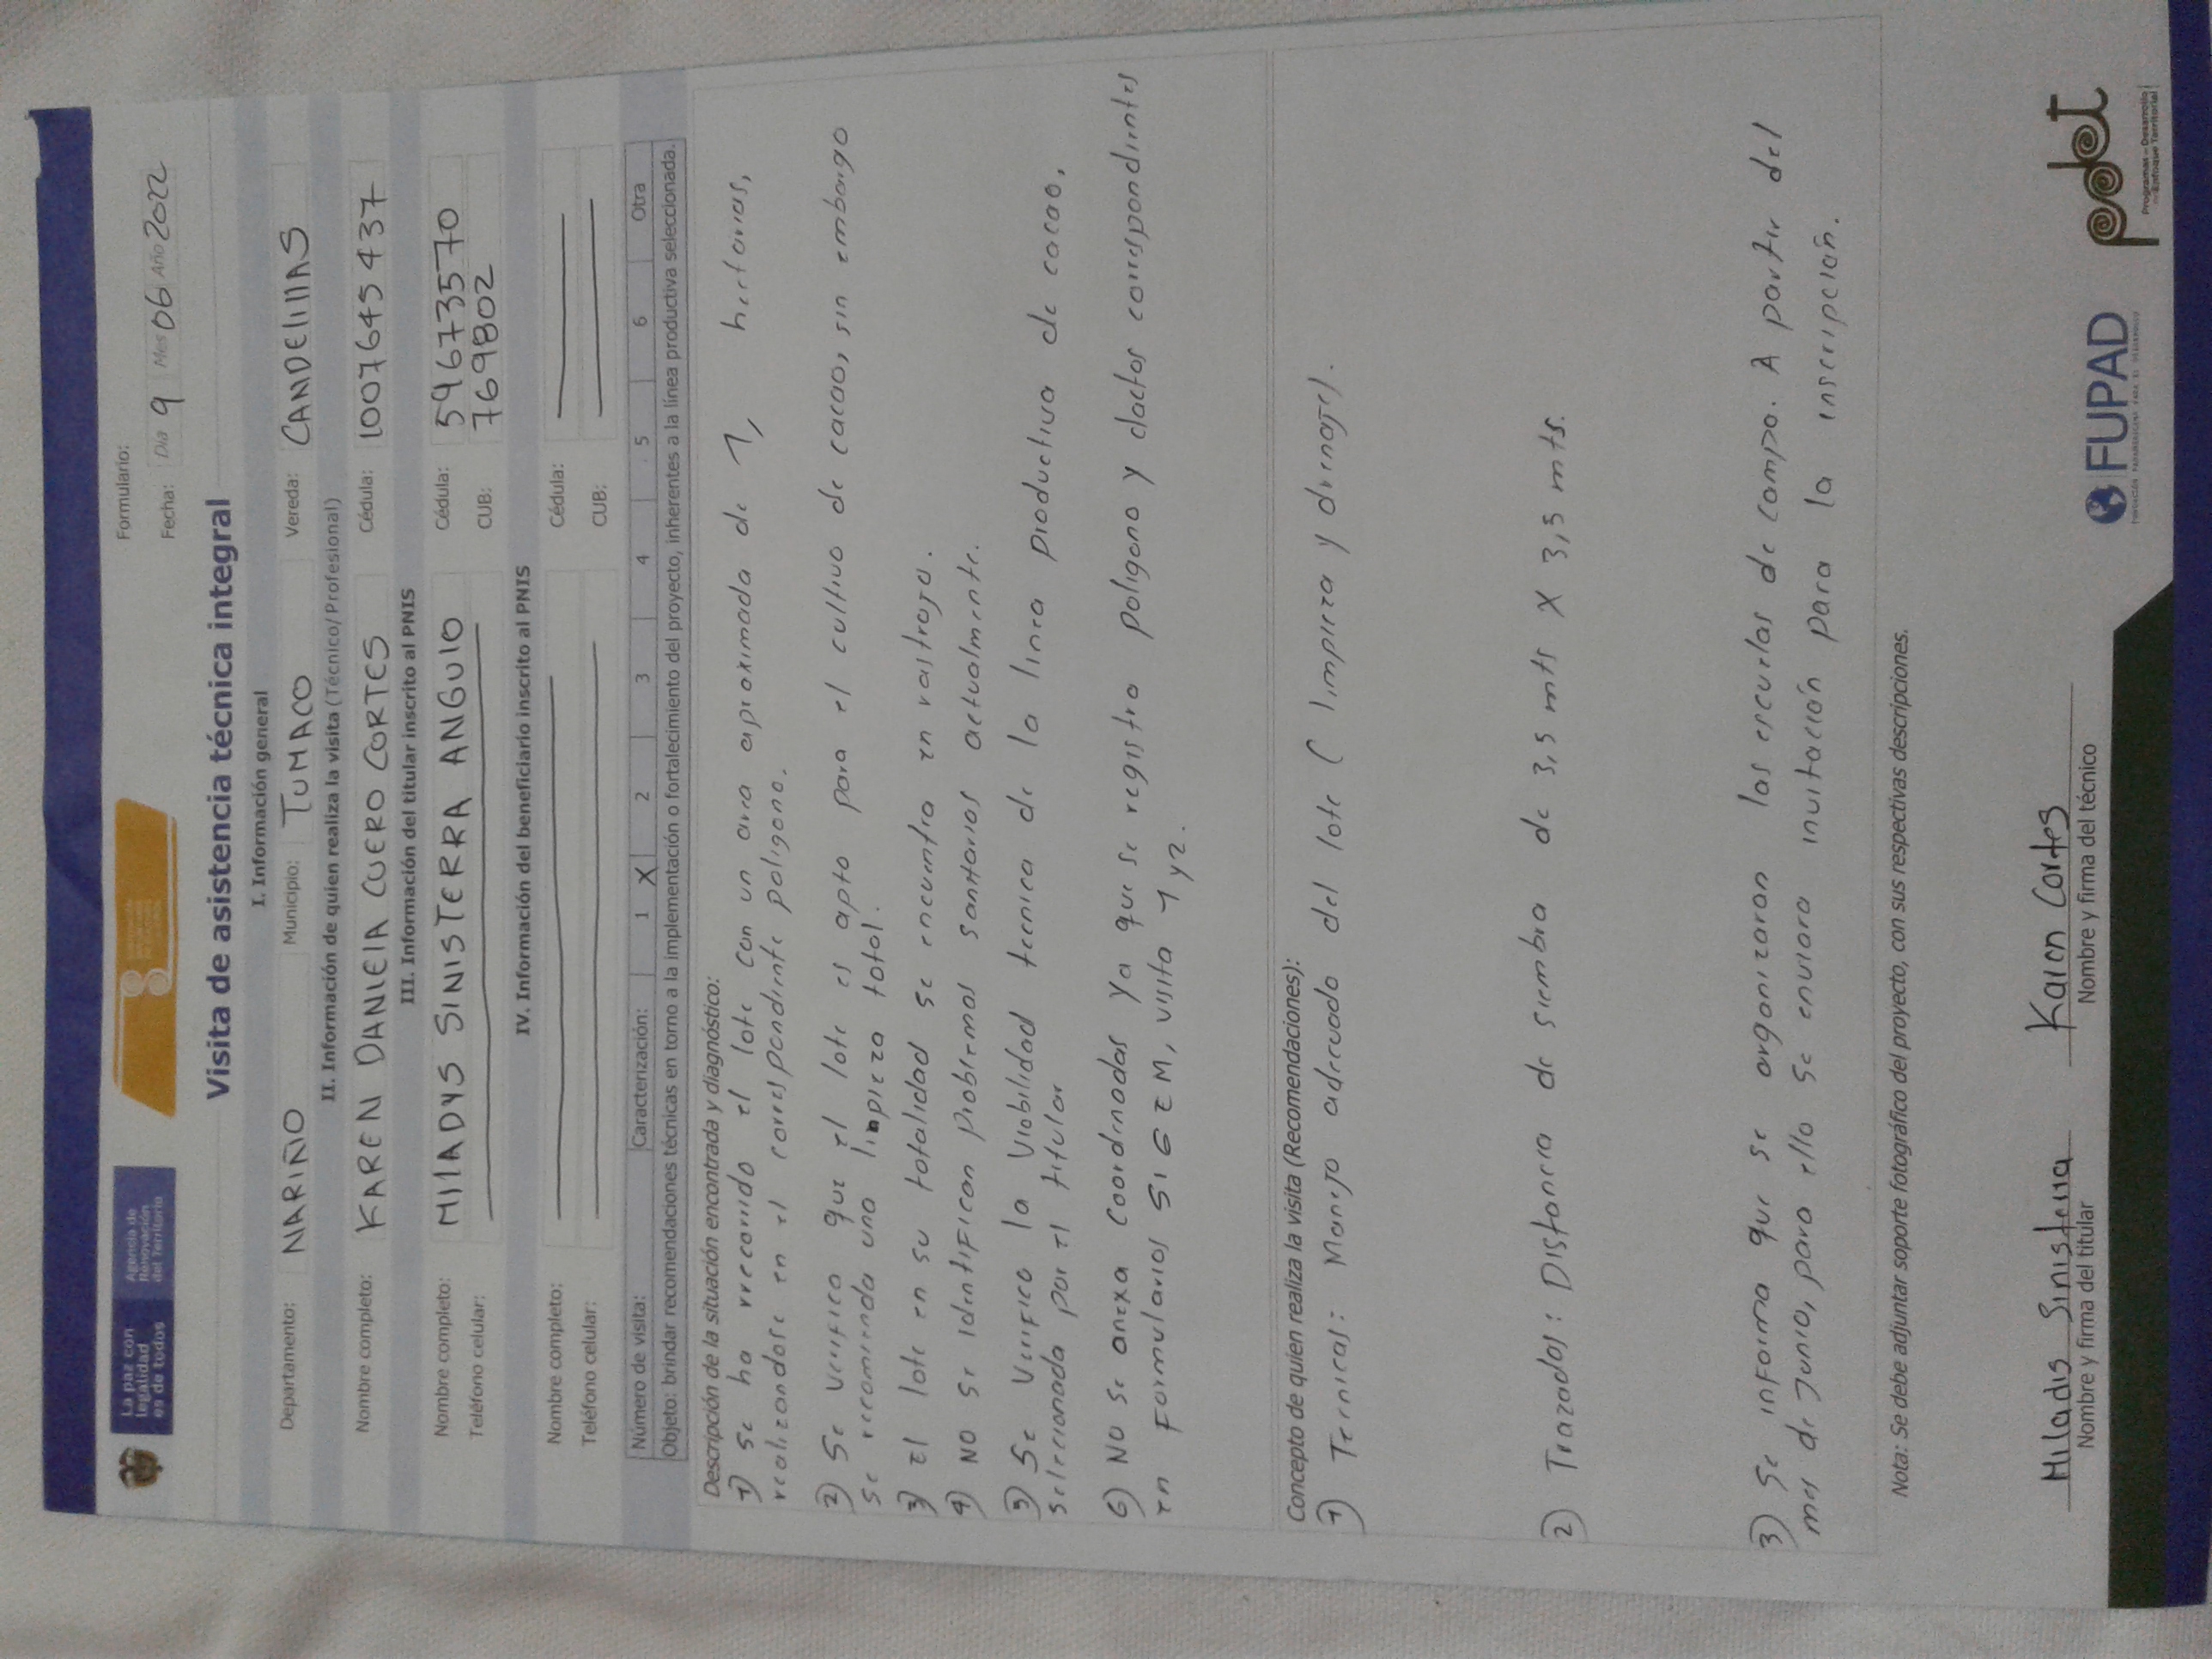 La paz con
legalidad
es de todos
Agencia de
Renovación
del Territorio
Formulario:
Fecha: Día 9 Mes 06 Año 2022
Visita de asistencia técnica integral
I. Información general
Departamento: NARIÑO Municipio: TUMACO Vereda: CANDElIllAS
II. Información de quien realiza la visita (Técnico/Profesional)
Nombre completo: KAREN DANIElA CUERO CORTES Cédula: 1007645437
III. Información del titular inscrito al PNIS
Nombre completo: MIlADYS SINISTERRA ANGUlO Cédula: 596735570
Teléfono celular: CUB: 769802
IV. Información del beneficiario inscrito al PNIS
Nombre completo: Cédula:
Teléfono celular: CUB:
Número de visita: Caracterización: 1 X 2 3 4 5 6 Otra
Objeto: brindar recomendaciones técnicas en torno a la implementación o fortalecimiento del proyecto, inherentes a la línea productiva seleccionada.
Descripción de la situación encontrada y diagnóstico:
1) Se ha recorrido el lote con un area aproximada de 1, hectarias,
realizandose en el correspondiente poligono.
2) Se verifico que el lote es apto para el cultivo de cacao, sin embargo
se recomienda una limpieza total.
3) El lote en su totalidad se encuentra en rastrojo.
4) NO se identifican problemas sanitarios actualmente.
5) Se verifico la viabilidad tecnica de la linea productiva de cacao,
seleccionada por el titular
6) NO se anexa coordenadas ya que se registra poligono y dactos correspondintes
en formularios SIGEM, visita 1 y 2.
Concepto de quien realiza la visita (Recomendaciones):
1) Tecnicas: Manejo adecuado del lote (limpieza y drenajes).
2) Trazados: Distancia de siembra de 3,5 mts X 3,5 mts.
3) Se informa que se organizaron las escuelas de campo. A partir del
mes de Junio, para ello se enviara invitación para la inscripción.
Nota: Se debe adjuntar soporte fotográfico del proyecto, con sus respectivas descripciones.
Miladis Sinisterra Karen Cortes
Nombre y firma del titular Nombre y firma del técnico
FUPAD
pdet
Programas de Desarrollo
con Enfoque Territorial